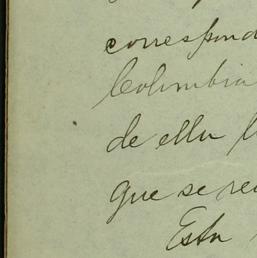 correspond
Colombia
de ella l
que se re
Esta